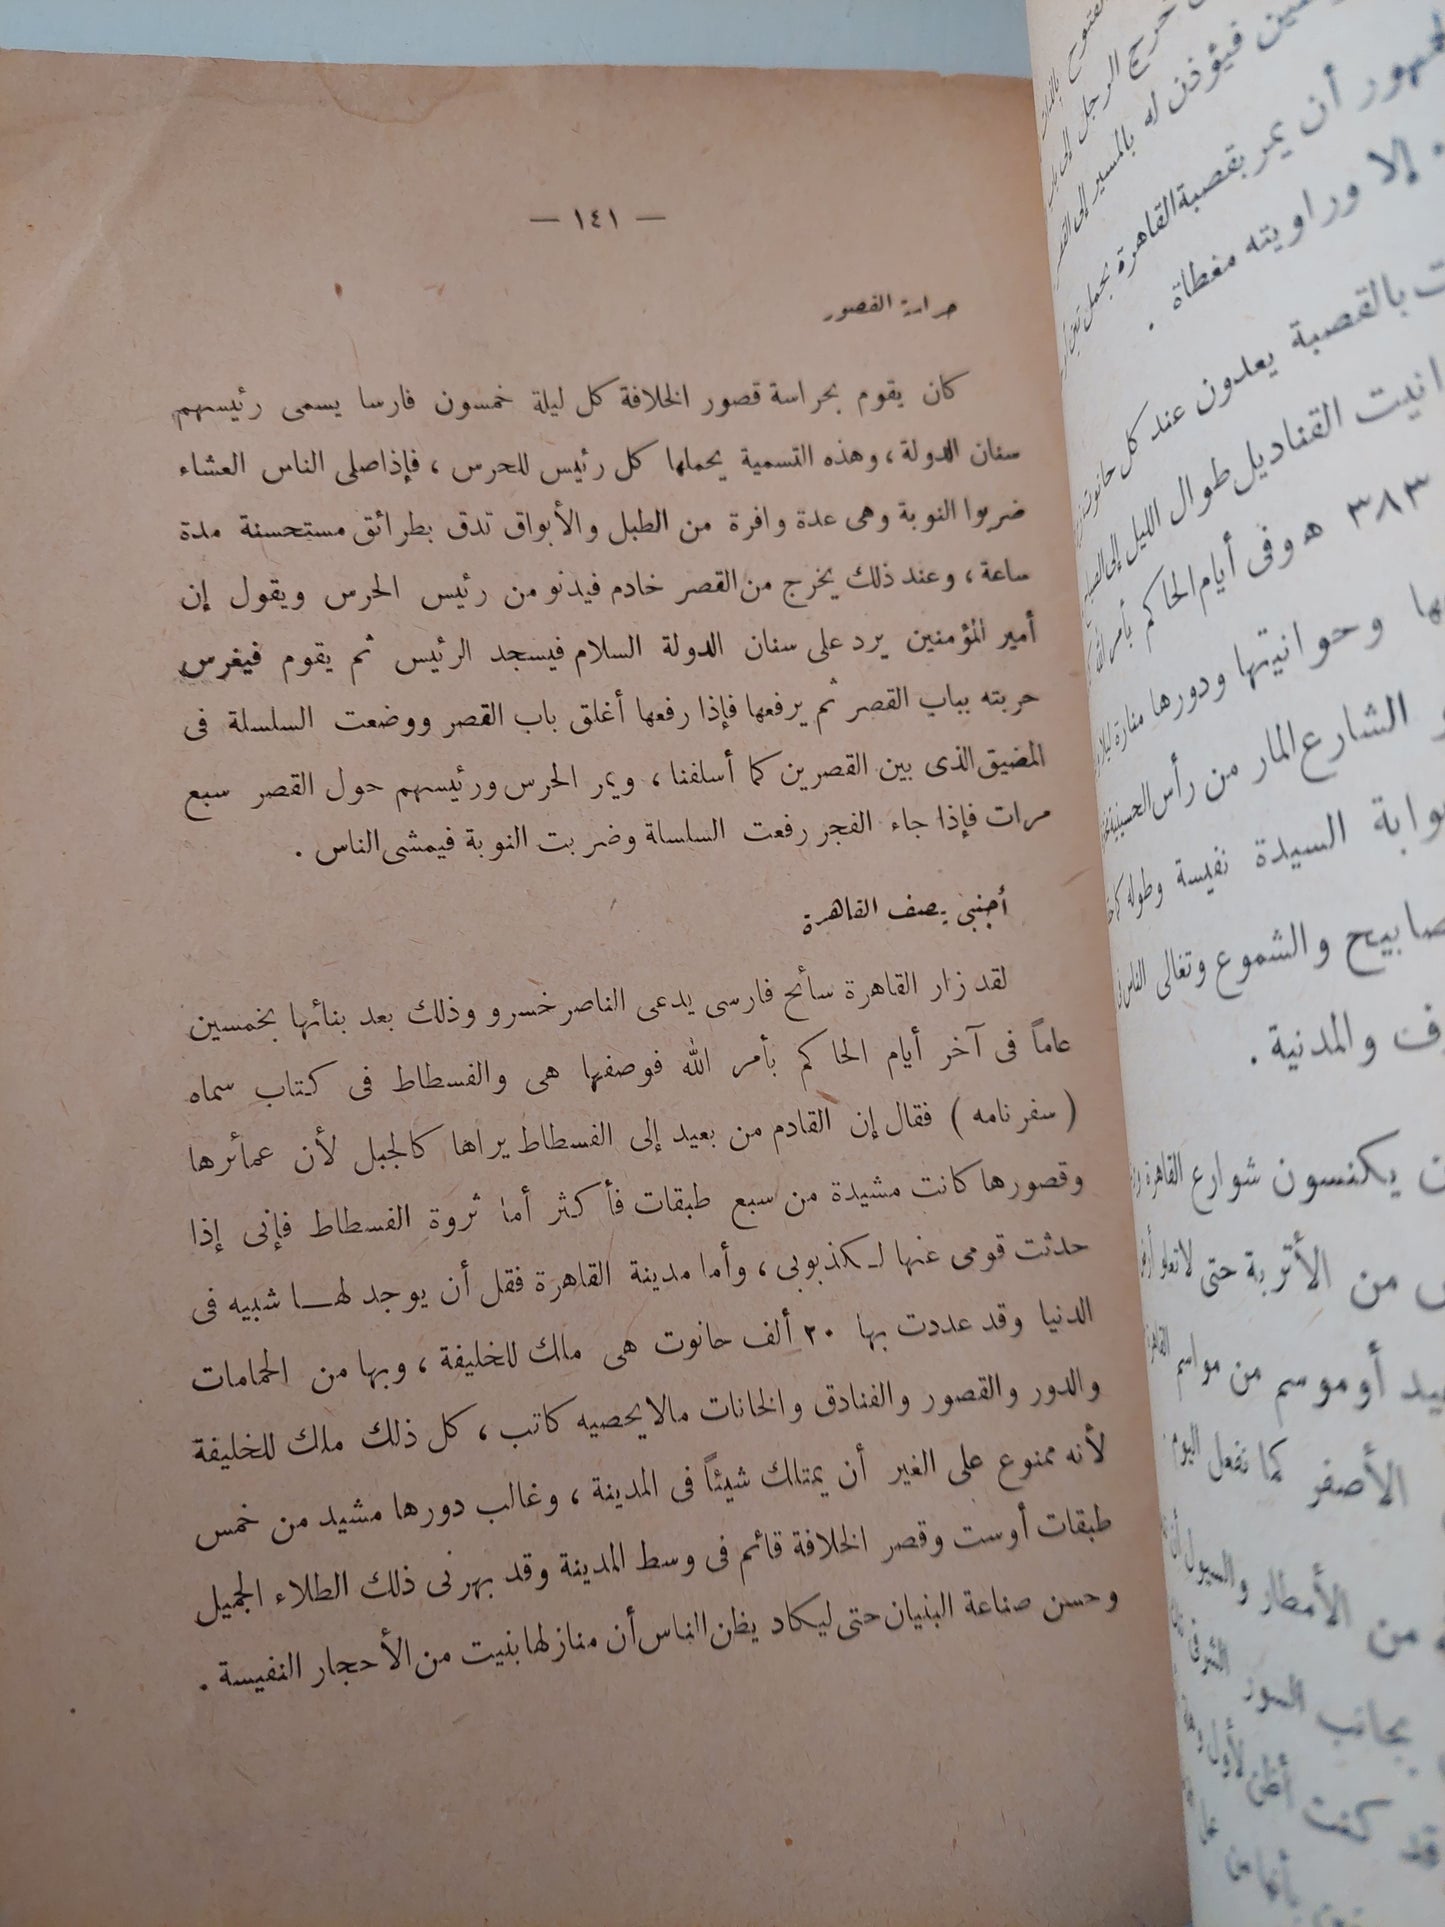 — ١٤١ —
حراسة القصور
كان يقوم بحراسة قصور الخلافة كل ليلة خمسون فارسا يسمى رئيسهم
سنان الدولة ، وهذه التسمية يحملها كل رئيس للحرس ، فإذا صلى الناس العشاء
ضربوا النوبة وهى عدة وافرة من الطبل والأبواق تدق بطرائق مستحسنة مدة
ساعة ، وعند ذلك يخرج من القصر خادم فيدنو من رئيس الحرس ويقول إن
أمير المؤمنين يرد على سنان الدولة السلام فيسجد الرئيس ثم يقوم فيغرس
حربته بباب القصر ثم يرفعها فإذا رفعها أغلق باب القصر ووضعت السلسلة فى
المضيق الذى بين القصرين كما أسلفنا ، ويمر الحرس ورئيسهم حول القصر سبع
مرات فإذا جاء الفجر رفعت السلسلة وضربت النوبة فيمشى الناس .
أجنبى يصف القاهرة
لقد زار القاهرة سائح فارسى يدعى الناصر خسرو وذلك بعد بنائها بخمسين
عاماً فى آخر أيام الحاكم بأمر الله فوصفها هى والفسطاط فى كتاب سماه
( سفر نامه ) فقال إن القادم من بعيد إلى الفسطاط يراها كالجبل لأن عمائرها
وقصورها كانت مشيدة من سبع طبقات فأكثر أما ثروة الفسطاط فإنى إذا
حدثت قومى عنها لكذبوبى ، وأما مدينة القاهرة فقل أن يوجد لهـا شبيه فى
الدنيا وقد عددت بها ٢٠ ألف حانوت هى ملك للخليفة ، وبها من الحمامات
والدور والقصور والفنادق والخانات مالا يحصيه كاتب ، كل ذلك ملك للخليفة
لأنه ممنوع على الغير أن يمتلك شيئاً فى المدينة ، وغالب دورها مشيد من خمس
طبقات أوست وقصر الخلافة قائم فى وسط المدينة وقد بهرنى ذلك الطلاء الجميل
وحسن صناعة البنيان حتى ليكاد يظن الناس أن منازلها بنيت من الأحجار النفيسة .
خرج الرجل إلى
فيؤذن له بالمسير إلى
أن يمر بقصبة القاهرة بجمل
إلا وراويته مغطاة .
بالقصبة يعدون عند كل حانوت
القناديل طوال الليل إلى
٣٨٣ ه وفى أيام الحاكم بأمر الله
وحوانيتها ودورها منارة
الشارع المار من رأس الحسينية
السيدة نفيسة وطوله
والشموع وتغالى الناس
والمدنية .
يكنسون شوارع القاهرة
من الأتربة حتى لا تعلو
أو موسم من مواسم القاهرة
الأصفر كما تفعل اليوم
من الأمطار والسيول
بجانب السور الشرقى
كنت أظن لأول